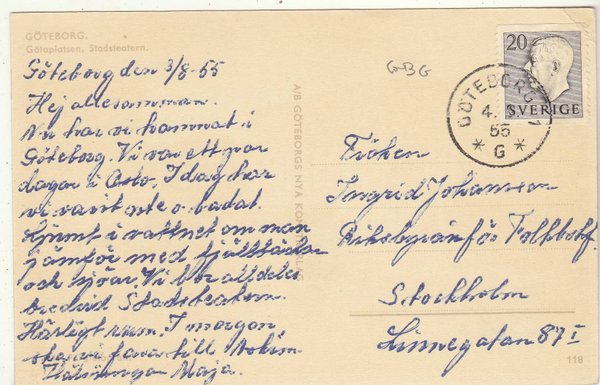 GÖTEBORG.
Götaplatsen. Stadsteatern.
Göteborg den 3/8-55
Hej allesamman.
Nu har vi hamnat i
Göteborg. Vi var ett par
dagar i Oslo. I dag har
vi varit ute o. badat.
Ljumt i vattnet om man
jämför med fjälltjärnar
och sjöar. Vi bor alldeles
bredvid Stadsteatern.
Härligt rum. I morgon
ska vi fara till
Hälsningar Maja.
A/B GÖTEBORGS NYA
GBG
20
SVERIGE
GÖTEBORG 1
4.
55
* G *
Fröken
Ingrid Johansson
Riksbyrån för Folkbokf.
Stockholm
Linnegatan 87 I
118